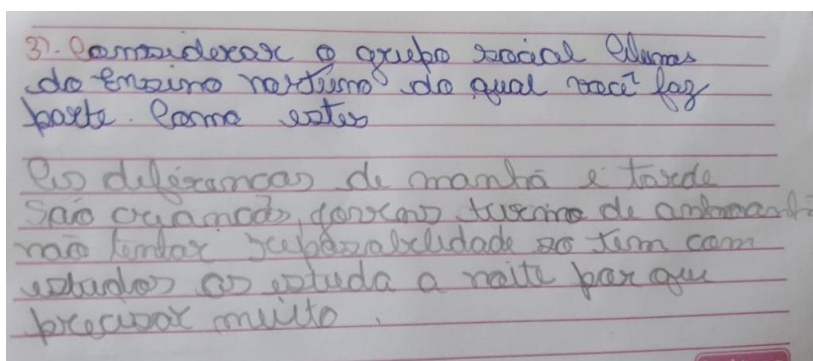 3). Considerar o grupo social Alunos
do Ensino norturno do qual você faz
parte. Como estes
As diferancas de manhã e tarde
São criancas, jovens turno de
não tentar só tem com
estudos as estuda a noite por que
precisar muito.